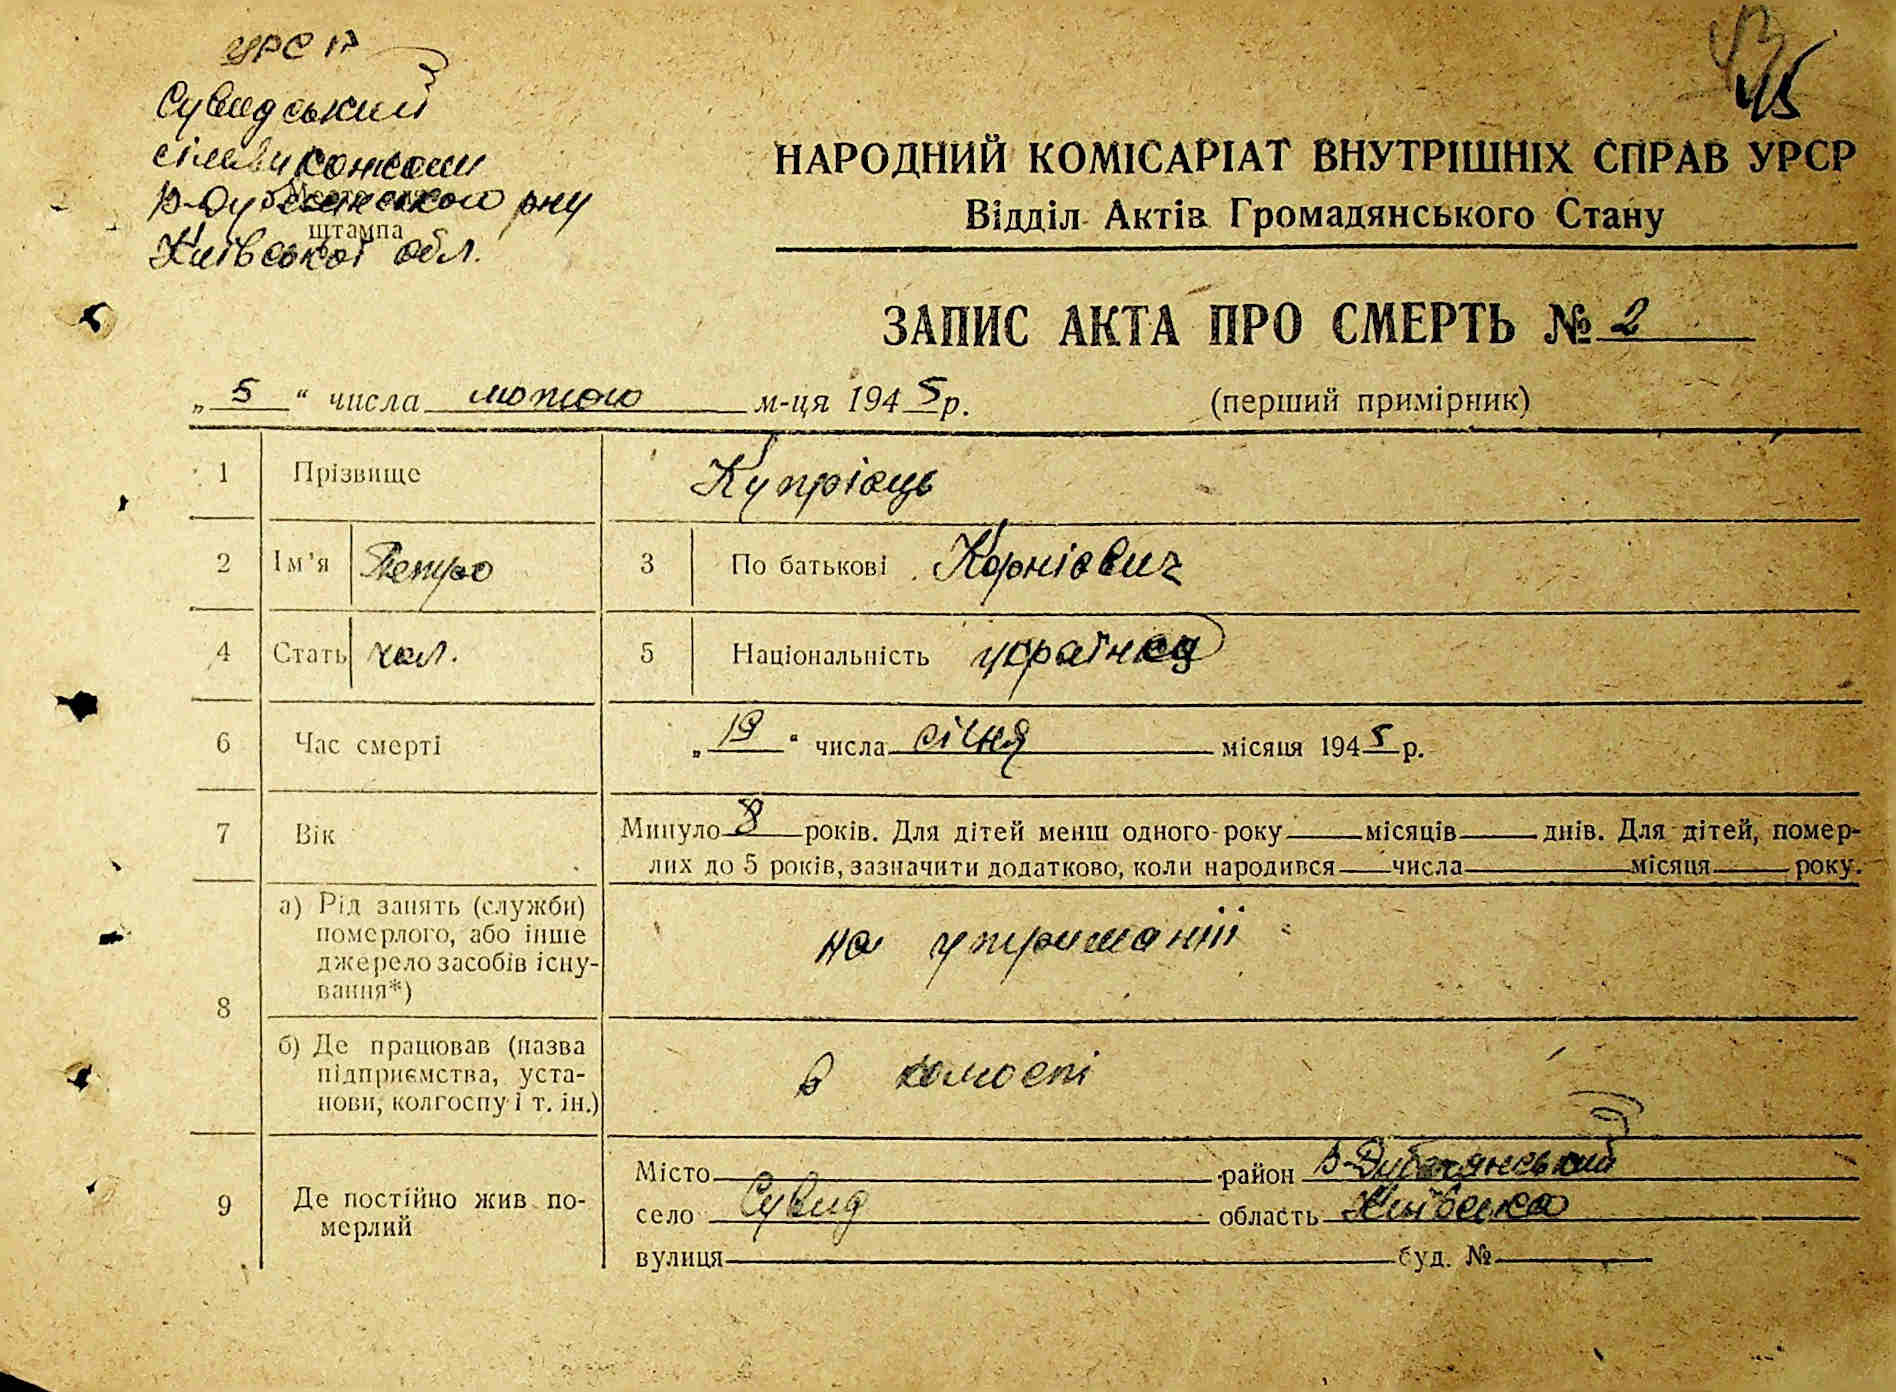 УРСР
Сувидський
сільвиконком
В-Дубечанського рну
Місце для
штампа
Київської обл.
НАРОДНИЙ КОМІСАРІАТ ВНУТРІШНІХ СПРАВ УРСР
Відділ Актів Громадянського Стану
ЗАПИС АКТА ПРО СМЕРТЬ № 2
„ 5 “ числа лютого м-ця 1945 р. (перший примірник)
1 Прізвище Купрієць
2 Ім'я Петро 3 По батькові Корнієвич
4 Стать чол. 5 Національність українец
6 Час смерті „ 19 “ числа січня місяця 1945 р.
7 Вік Минуло 8 років. Для дітей менш одного року місяців днів. Для дітей, помер-
лих до 5 років, зазначити додатково, коли народився числа місяця року.
8 а) Рід занять (служби)
померлого, або інше
джерело засобів існу-
вання*)
на утриманні
б) Де працював (назва
підприємства, уста-
нови, колгоспу і т. ін.)
в колгоспі
9 Де постійно жив по-
мерлий
Місто район В-Дубечанський
село Сувид область Київська
вулиця буд. №